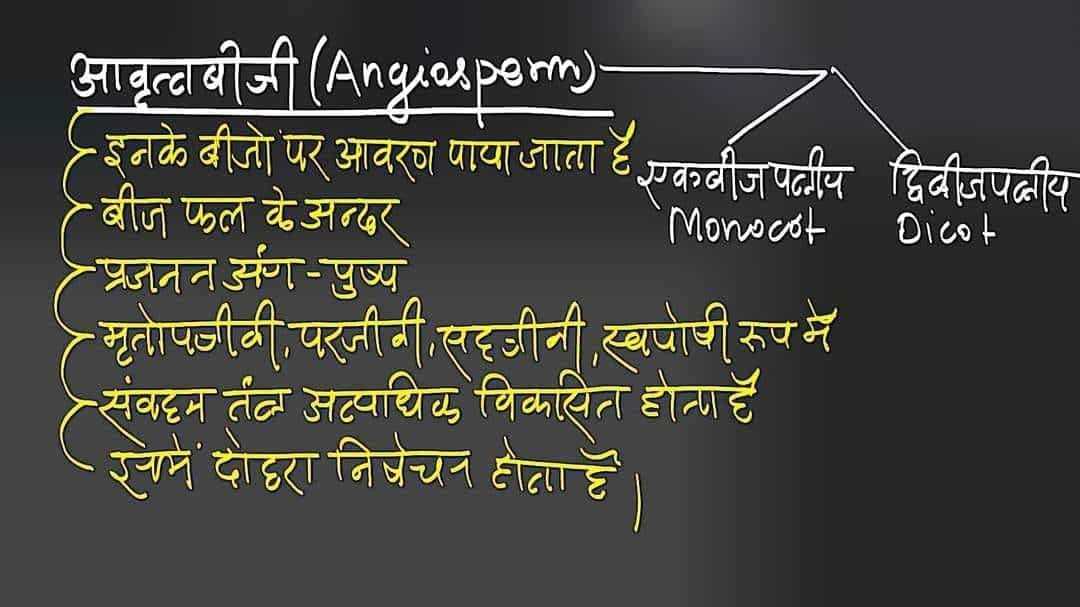 आवृत्तबीजी (Angiosperm)
एकबीजपत्रीय द्विबीजपत्रीय
Monocot Dicot
इनके बीजों पर आवरण पाया जाता है
बीज फल के अन्दर
प्रजनन अंग - पुष्प
मृतोपजीवी, परजीवी, सहजीवी, स्वपोषी रूप में
संवहन तंत्र अत्यधिक विकसित होता है
इनमें दोहरा निषेचन होता है।